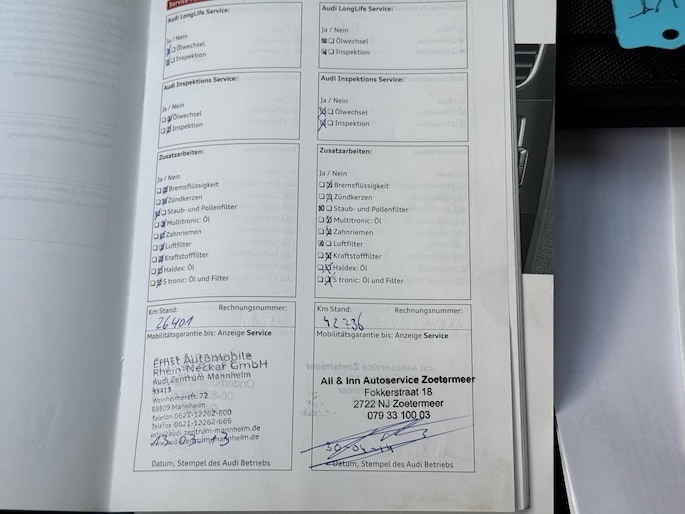 Audi LongLife Service:
Ja / Nein
Ölwechsel
Inspektion
Audi Inspektions Service:
Ja / Nein
Ölwechsel
Inspektion
Zusatzarbeiten:
Ja / Nein
Bremsflüssigkeit
Zündkerzen
Staub- und Pollenfilter
Multitronic: Öl
Zahnriemen
Luftfilter
Kraftstofffilter
Haldex: Öl
S tronic: Öl und Filter
Km Stand: Rechnungsnummer:
26401
Mobilitätsgarantie bis: Anzeige Service
Ernst Automobile
Rhein-Neckar GmbH
Audi Zentrum Mannheim
Weinheimerstr. 72
68309 Mannheim
Telefon 0621-12262-600
Telefax 0621-12262-686
info@audi-zentrum-mannheim.de
Datum, Stempel des Audi Betriebs
Audi LongLife Service:
Ja / Nein
Ölwechsel
Inspektion
Audi Inspektions Service:
Ja / Nein
Ölwechsel
Inspektion
Zusatzarbeiten:
Ja / Nein
Bremsflüssigkeit
Zündkerzen
Staub- und Pollenfilter
Multitronic: Öl
Zahnriemen
Luftfilter
Kraftstofffilter
Haldex: Öl
S tronic: Öl und Filter
Km Stand: Rechnungsnummer:
42736
Mobilitätsgarantie bis: Anzeige Service
All & Inn Autoservice Zoetermeer
Fokkerstraat 18
2722 NJ Zoetermeer
079 33 100 03
30-04-14
Datum, Stempel des Audi Betriebs